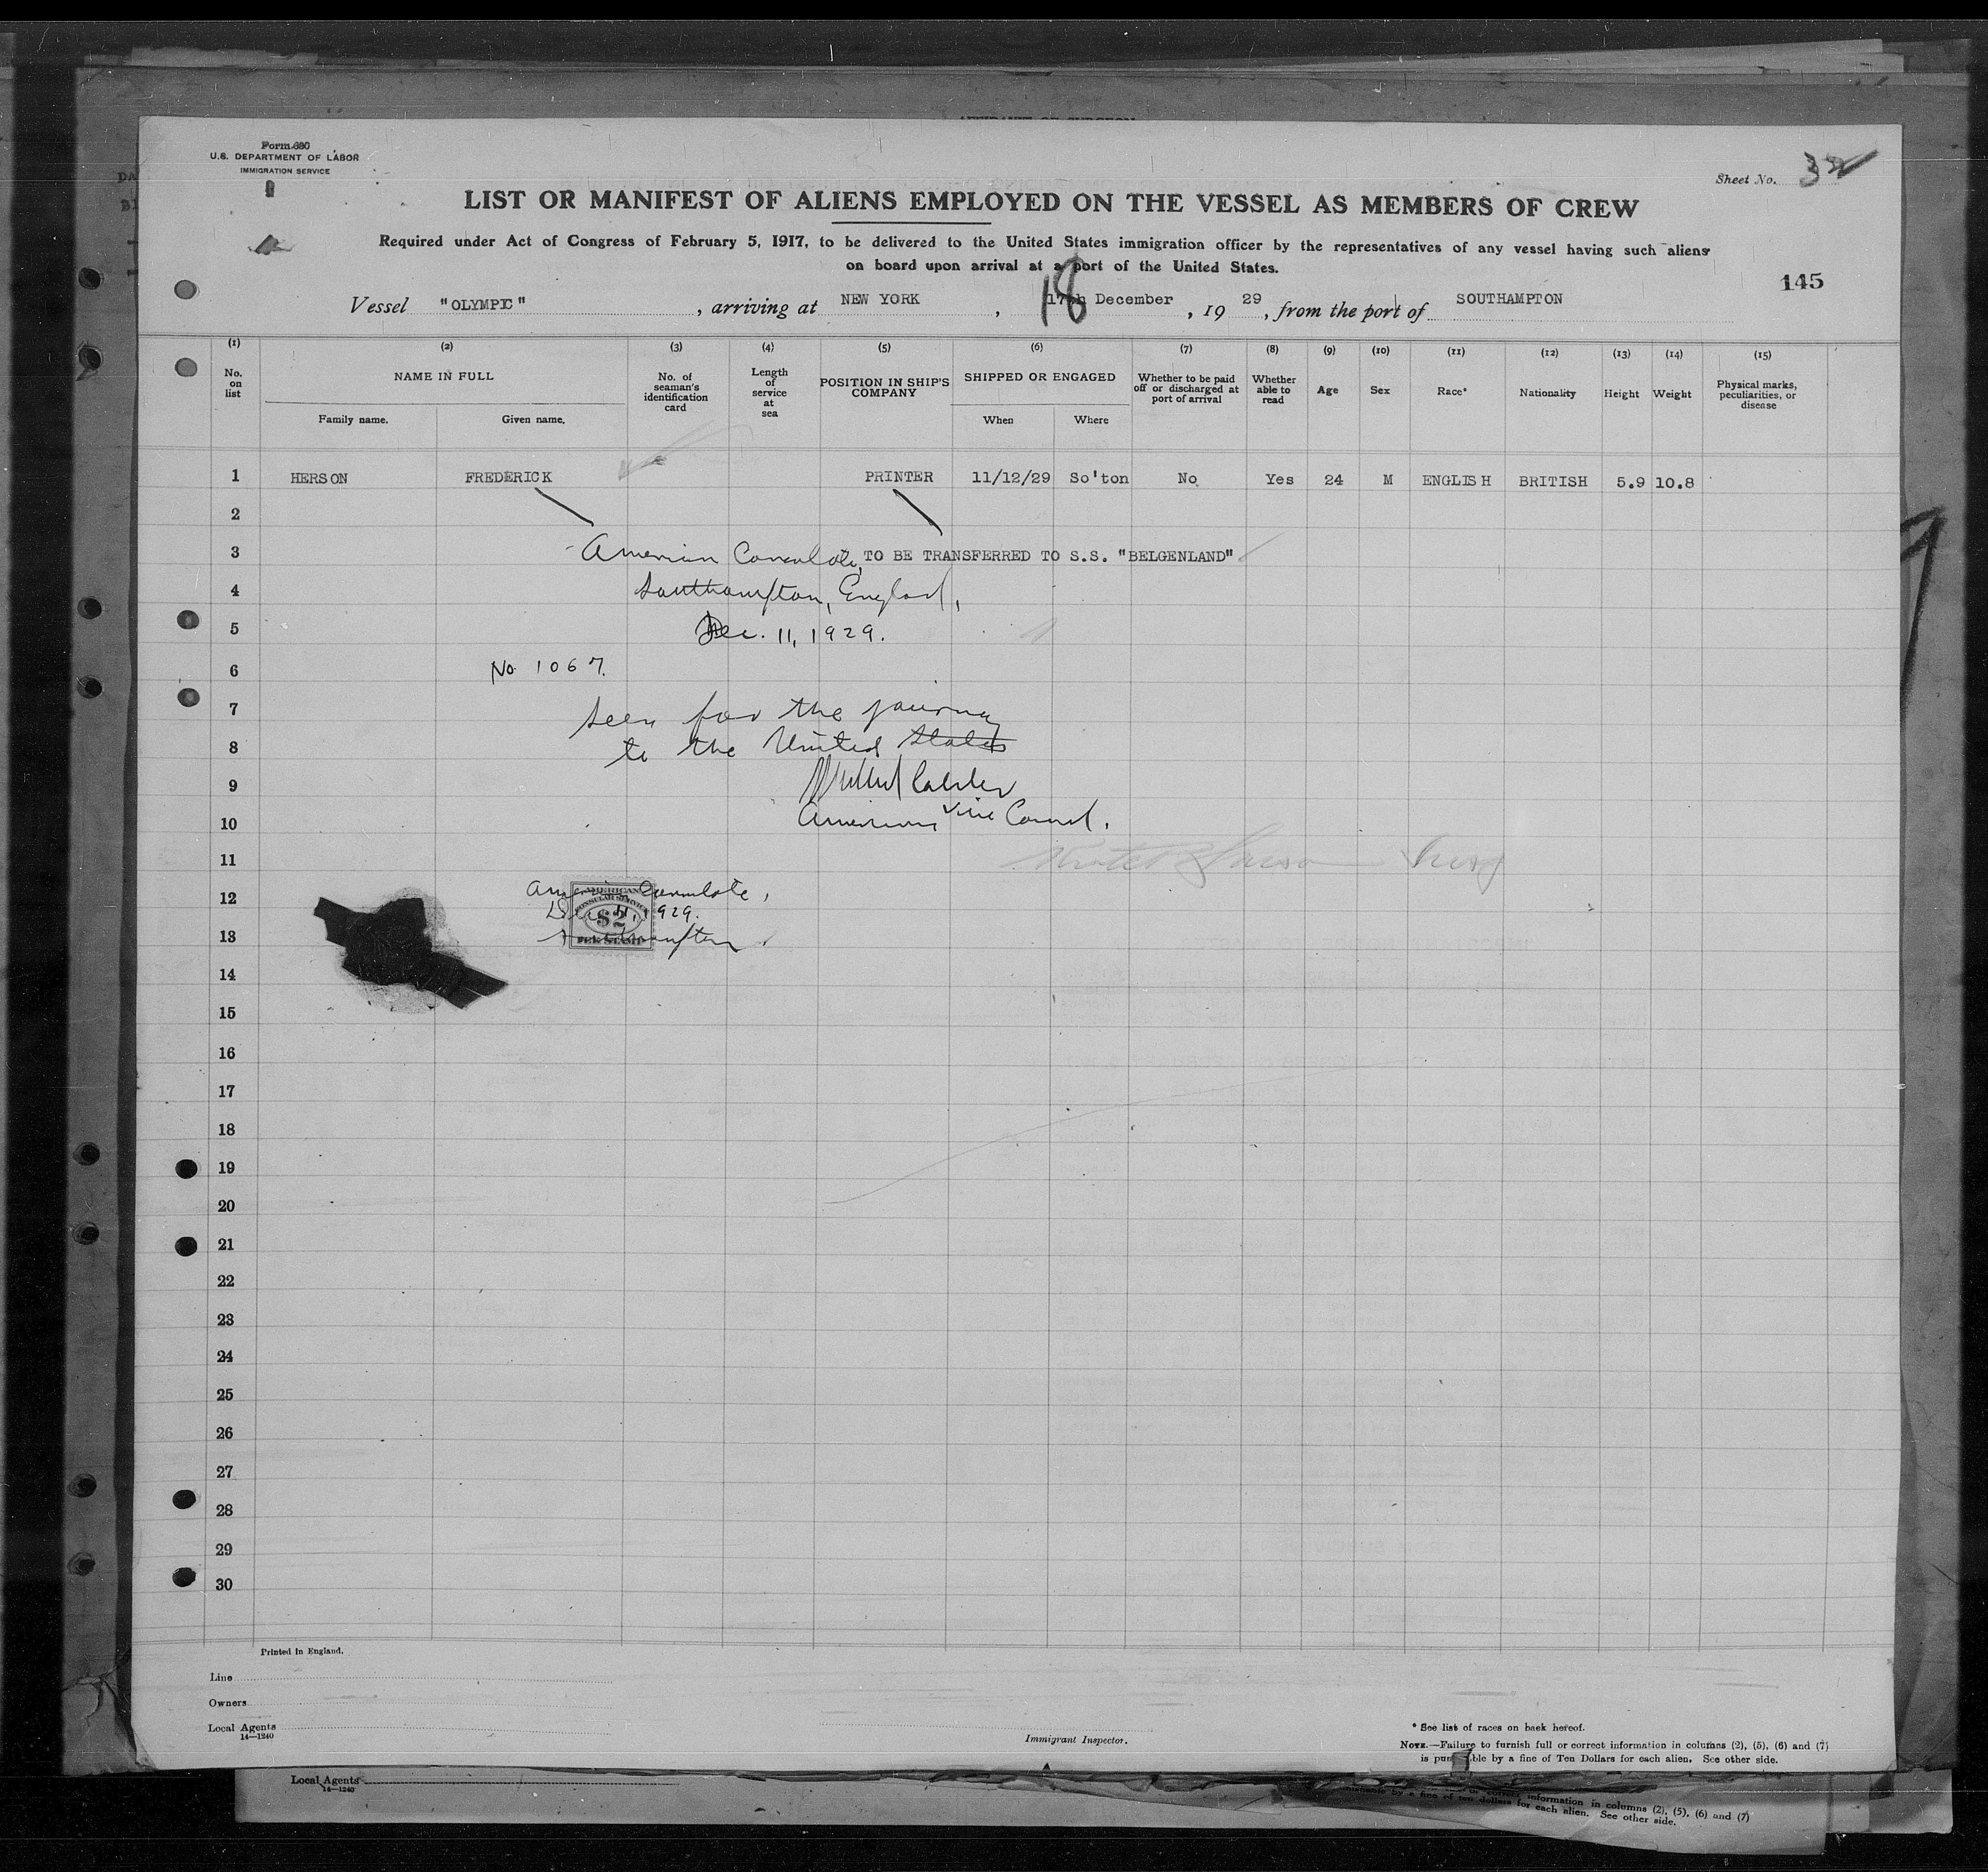 Form 680
U.S. DEPARTMENT OF LABOR
IMMIGRATION SERVICE
Sheet No. 32
LIST OR MANIFEST OF ALIENS EMPLOYED ON THE VESSEL AS MEMBERS OF CREW
Required under Act of Congress of February 5, 1917, to be delivered to the United States immigration officer by the representatives of any vessel having such aliens
on board upon arrival at a port of the United States.
145
Vessel "OLYMPIC", arriving at NEW YORK, 18 17th December, 1929, from the port of SOUTHAMPTON
(1) (2) (3) (4) (5) (6) (7) (8) (9) (10) (11) (12) (13) (14) (15)
No. on list NAME IN FULL Family name. Given name. No. of seaman's identification card Length of service at sea POSITION IN SHIP'S COMPANY SHIPPED OR ENGAGED When Where Whether to be paid off or discharged at port of arrival Whether able to read Age Sex Race* Nationality Height Weight Physical marks, peculiarities, or disease
1 HERSON FREDERICK PRINTER 11/12/29 So'ton No Yes 24 M ENGLISH BRITISH 5.9 10.8
2
3 American Consulate, TO BE TRANSFERRED TO S.S. "BELGENLAND"
4 Southampton, England,
5 Dec. 11, 1929.
6 No 1067.
7 Seen for the journey
8 to the United States
9
10 American Vice Consul.
11
12 American Consulate,
AMERICAN
CONSULAR SERVICE
$2
FEE STAMP
Dec 11, 1929.
13 Southampton.
14
15
16
17
18
19
20
21
22
23
24
25
26
27
28
29
30
Printed in England.
Line
Owners
Local Agents
14—1240
Immigrant Inspector.
* See list of races on back hereof.
NOTE.—Failure to furnish full or correct information in columns (2), (5), (6) and (7)
is punishable by a fine of Ten Dollars for each alien. See other side.
Local Agents
14—1240
information in columns (2), (5), (6) and (7)
by a fine of ten dollars for each alien. See other side.